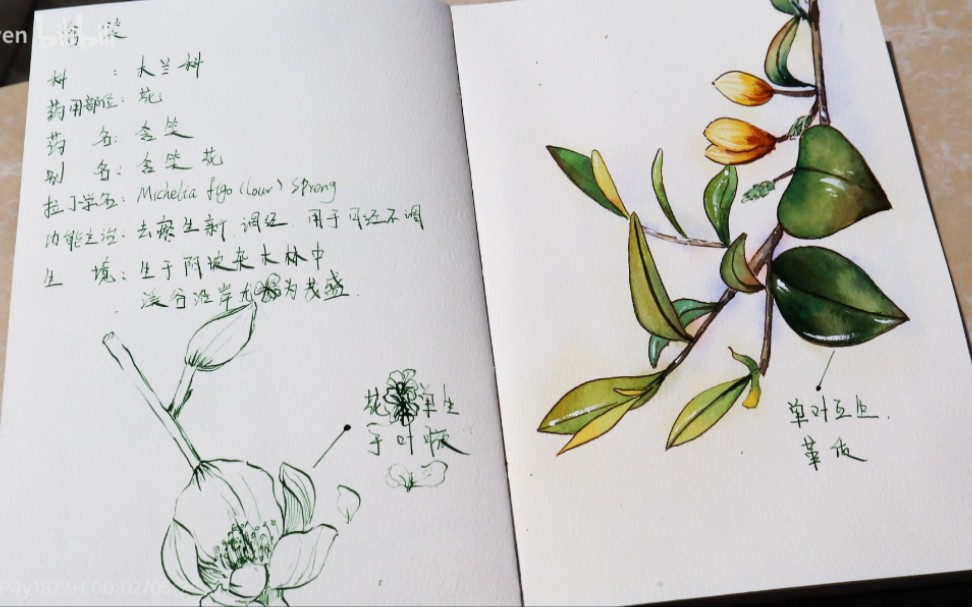 en bilibili
含笑
科 : 木兰科
药用部位: 花
药 名: 含笑
别 名: 含笑花
拉丁学名: Michelia figo (Lour) Spreng
功能主治: 去瘀生新、调经、用于月经不调
生 境: 生于阴坡杂木林中
溪谷沿岸尤为茂盛.
花单生
于叶腋
单叶互生.
革质
P4y1872H 00:02/05